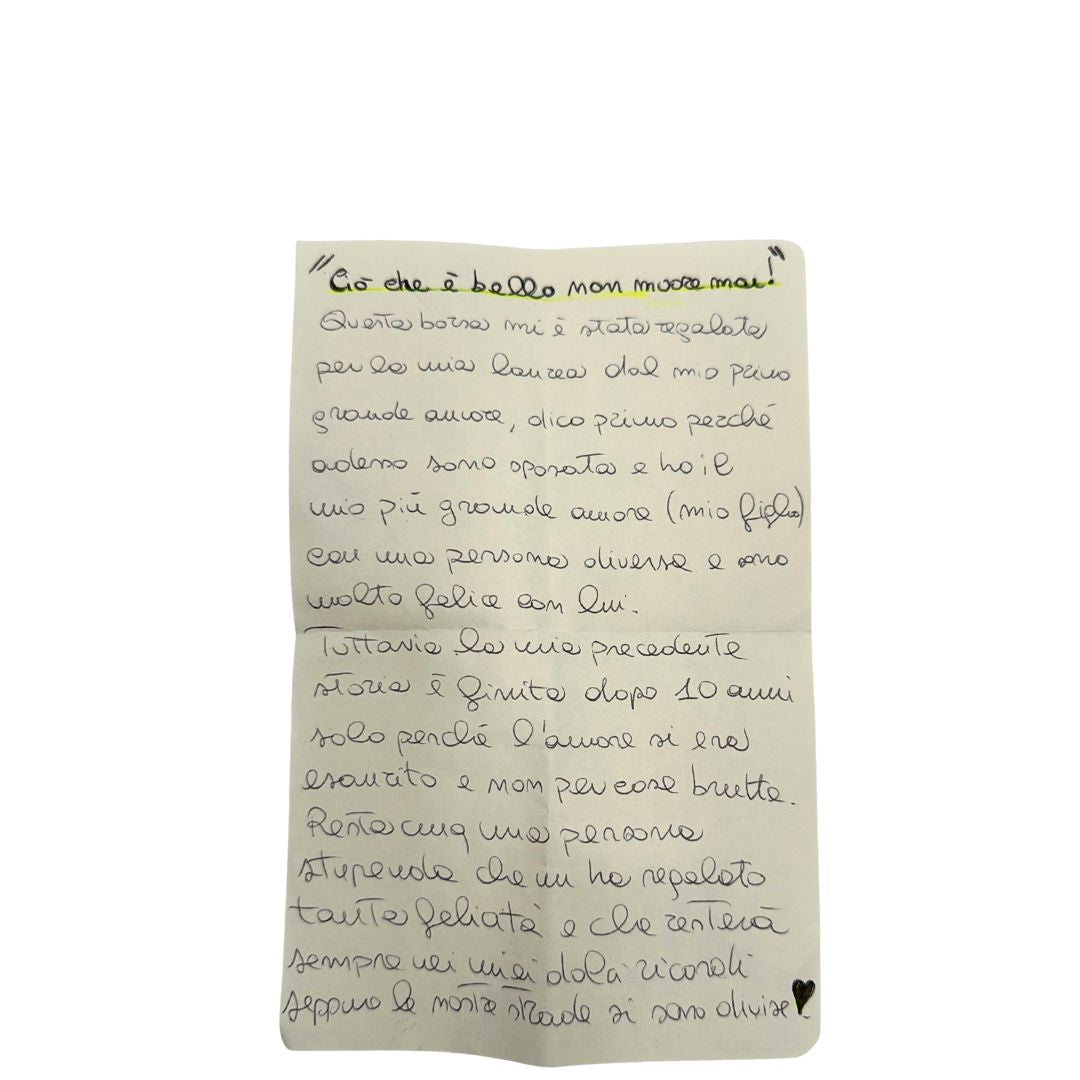 "Ciò che è bello non muore mai!"
Questa borsa mi è stata regalata
per la mia laurea dal mio primo
grande amore, dico primo perché
adesso sono sposata e ho il
mio più grande amore (mio figlio)
con una persona diversa e sono
molto felice con lui.
Tuttavia la mia precedente
storia è finita dopo 10 anni
solo perché l'amore si era
esaurito e non per cose brutte.
Resta cmq una persona
stupenda che mi ha regalato
tanta felicità e che resterà
sempre nei miei dolci ricordi
seppure le nostre strade si sono divise ♥